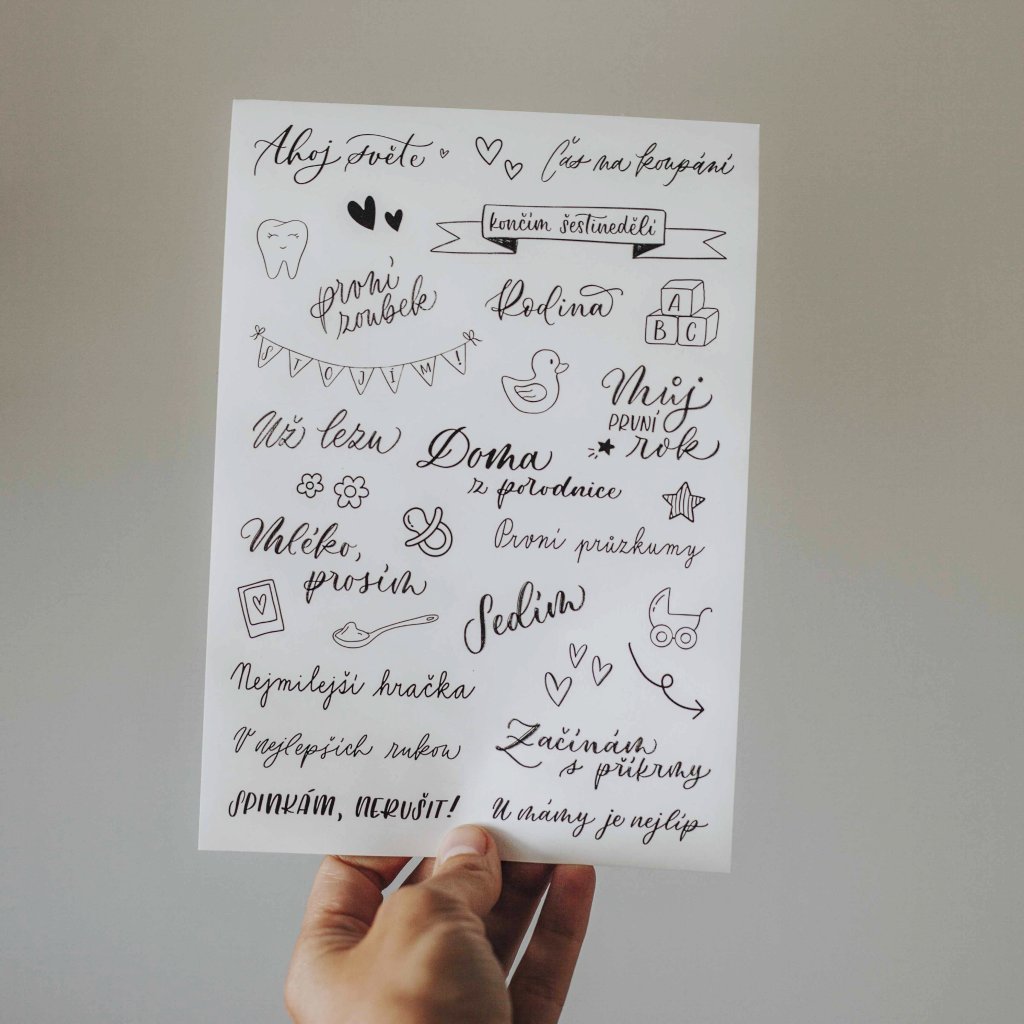 Ahoj světe
Čas na koupání
končím šestinedělí
první
zoubek
Rodina
A
B C
STOJÍM!
Můj
PRVNÍ
rok
Už lezu
Doma
z porodnice
Mléko,
prosím
První průzkumy
Sedím
Nejmilejší hračka
V nejlepších rukou
Začínám
s příkrmy
SPINKÁM, NERUŠIT!
U mámy je nejlíp